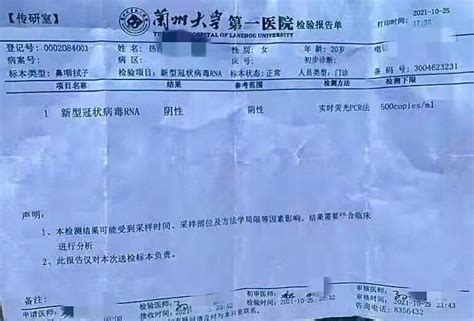 【传研室】 兰州大学第一医院 检验报告单 2021-10-25
THE HOSPITAL OF LANZHOU UNIVERSITY 打印时间: 17:32
登记号: 0002084003 姓名: 性别: 女 年龄: 20岁
病案号: 病区: 床号: 初步诊断:
标本类型: 鼻咽拭子 送检项目: 新型冠状病毒RNA 标本状态: 正常 人员类型: 门诊 标本号: 3004623231
项目名称 结果 参考范围 检测方法 检测下限
1 新型冠状病毒RNA 阴性 阴性 实时荧光PCR法 500copies/ml
声明:
1、本检测结果可能受到采样时间、采样部位及方法学局限等因素影响，结果需要**合临床
进行分析
2、此报告仅对本次送检标本负责。
申请医师: 检验医师: 初审医师: 审核医师:
备注: 接收时间: 20:32 2021-10-25 20:32 审核时间: 2021-10-25 23:43
咨询电话: 8356432